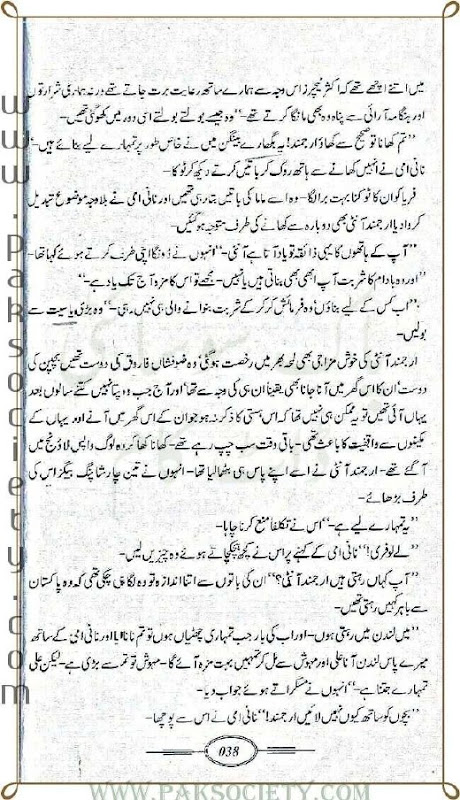 میں اتنے اچھے تھے کہ اکثر ٹیچرز اس وجہ سے ہمارے ساتھ رعایت برت جاتے تھے ورنہ ہماری شرارتوں
اور ہنگامہ آرائی سے پناہ وہ بھی مانگا کرتے تھے۔“ وہ جیسے بولتے بولتے اسی دور میں کھو گئی تھیں۔
”تم کھانا تو صحیح سے کھاؤ ارجمند! یہ بگھارے بینگن میں نے خاص طور پر تمہارے لیے بنائے ہیں۔“
نانی امی نے انہیں کھانے سے ہاتھ روک کر باتیں کرتے دیکھ کر ٹوکا۔
فریا کو ان کا ٹوکنا بہت برا لگا۔ وہ اسے ماما کی باتیں بتا رہی تھیں اور نانی امی نے بلاوجہ موضوع تبدیل
کروا دیا ارجمند آنٹی بھی دوبارہ سے کھانے کی طرف متوجہ ہو گئیں۔
”آپ کے ہاتھوں کا یہی ذائقہ تو یاد آتا ہے آنٹی۔“ انہوں نے ڈونگا اپنی طرف کرتے ہوئے کہا تھا۔
”اور وہ بادام کا شربت آپ ابھی بھی بناتی ہیں یا نہیں۔ مجھے تو اس کا مزہ آج تک یاد ہے۔“
”اب کس کے لیے بناؤں‘ وہ فرمائش کر کر کے شربت بنوانے والی ہی نہیں رہی۔“ وہ بڑی یاسیت سے
بولیں۔
ارجمند آنٹی کی خوش مزاجی بھی لمحہ بھر میں رخصت ہو گئی‘ وہ ضوفشاں فاروق کی دوست تھیں بچپن کی
دوست‘ ان کا اس گھر میں آنا جانا بھی یقیناً ان ہی کی وجہ سے تھا‘ اور آج جب وہ پتا نہیں کتنے سالوں بعد
یہاں آئی تھیں تو یہ ممکن ہی نہیں تھا کہ اس ہستی کا ذکر نہ ہو جو ان کے اس گھر میں آنے اور یہاں کے
مکینوں سے واقفیت کا باعث تھی۔ باقی وقت سب چپ رہے تھے۔ کھانا کھا کر وہ لوگ واپس لاؤنج میں
آ گئے تھے۔ ارجمند آنٹی نے اسے اپنے پاس ہی بٹھا لیا تھا۔ انہوں نے تین چار شاپنگ بیگز اس کی
طرف بڑھائے۔
”یہ تمہارے لیے ہے۔“ اس نے تکلفاً منع کرنا چاہا۔
”لے لو فری!“ نانی امی کے کہنے پر اس نے کچھ ہچکچاتے ہوئے وہ چیزیں لیں۔
”آپ کہاں رہتی ہیں ارجمند آنٹی؟“ ان کی باتوں سے اتنا اندازہ تو وہ لگا ہی چکی تھی کہ وہ پاکستان
سے باہر کہیں رہتی تھیں۔
”میں لندن میں رہتی ہوں۔ اور اب کی بار جب تمہاری چھٹیاں ہوں تو تم نانا ابا اور نانی امی کے ساتھ
میرے پاس لندن آنا علی اور مہوش سے مل کر تمہیں بہت مزہ آئے گا۔ مہوش تو تم سے بڑی ہے۔ لیکن علی
تمہارے جتنا ہے۔“ انہوں نے مسکراتے ہوئے جواب دیا۔
”بچوں کو ساتھ کیوں نہیں لائیں ارجمند!“ نانی امی نے اس سے پوچھا۔
038
www.paksociety.com
WWW.PAKSOCIETY.COM